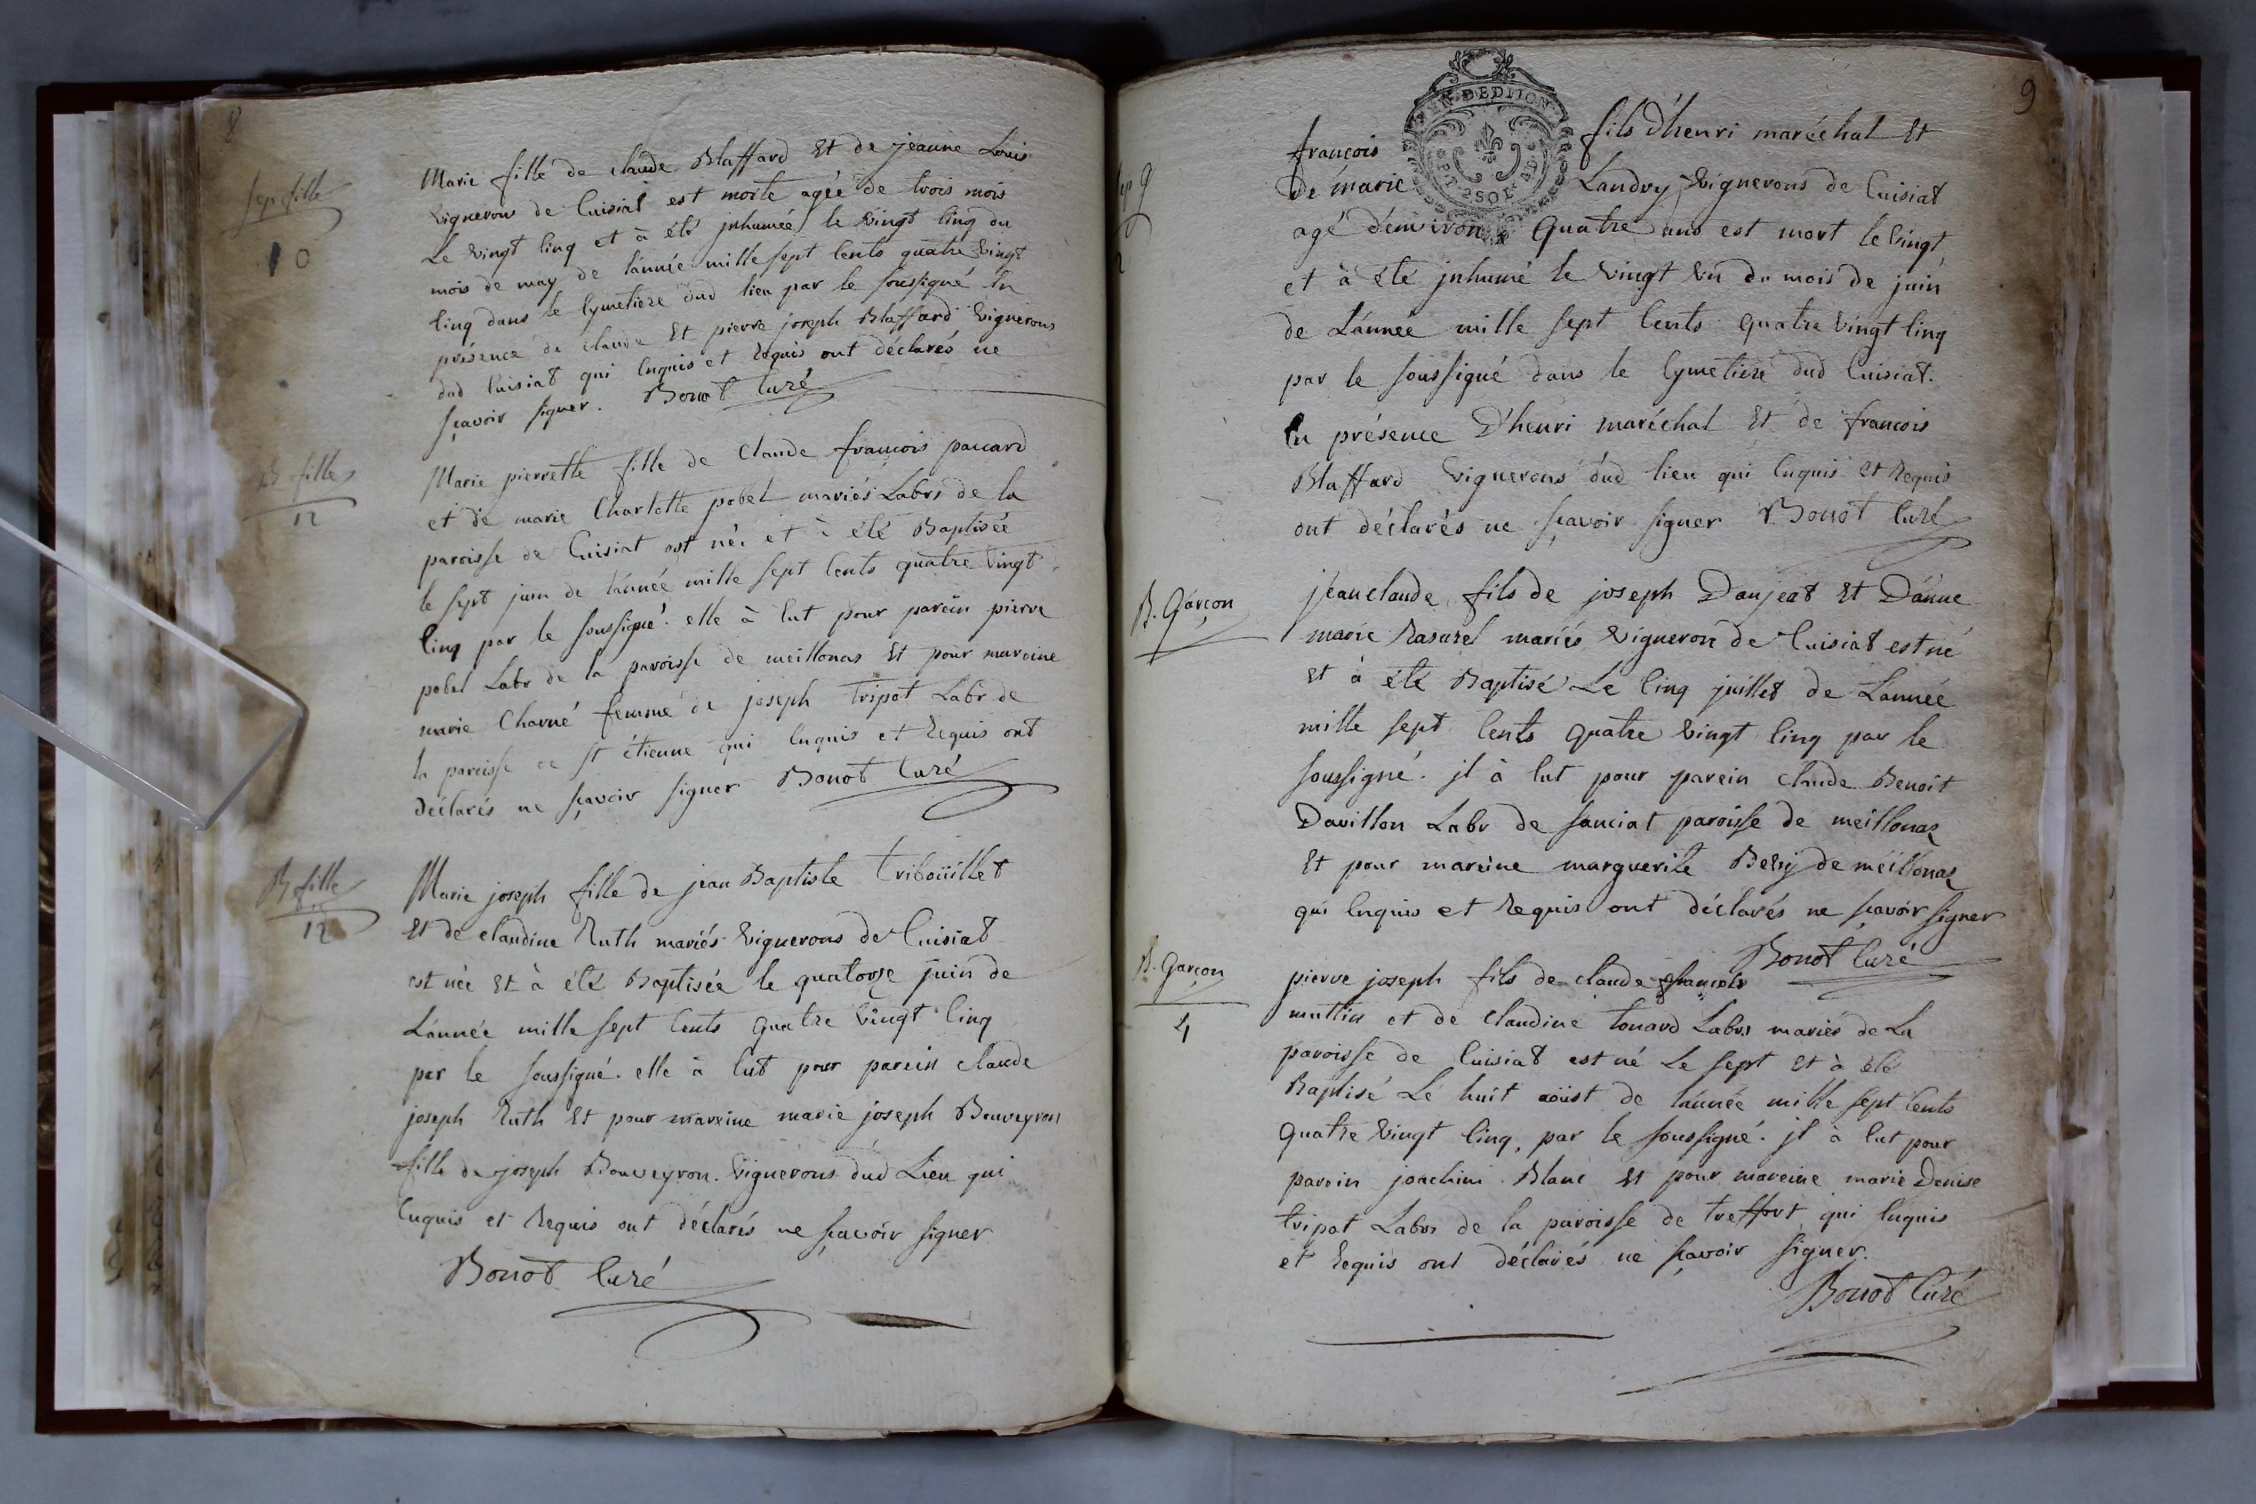 8
Sep. fille
10
Marie fille de claude Blaffard Et de jeanne Louis
vignerons de Cuisiat est morte agée de trois mois
Le vingt cinq et à été jnhumée le vingt cinq du
mois de may de l'année mille sept cents quatre vingt
cinq dans le cymetiere dud lieu par le soussigné En
présence de claude Et pierre joseph Blaffard vignerons
dud Cuisiat qui Enquis et Requis ont déclarés ne
sçavoir signer. Bonot Curé
B fille
12
Marie pierrette fille de Claude françois paccard
et de marie Charlotte pobel mariés Labrs de la
paroisse de Cuisiat est née et à été Baptisée
le sept juin de l'année mille sept cents quatre vingt
cinq par le soussigné. elle à Eut pour parein pierre
pobel Labr de la paroisse de meillonas Et pour mareine
marie Charné femme de joseph tripot Labr de
la paroisse de st étienne qui Enquis et Requis ont
déclarés ne sçavoir signer Bonot Curé
B fille
12
Marie joseph fille de jean Baptiste triboüillet
Et de claudine Ruth mariés vignerons de Cuisiat
est née Et à été Baptisée le quatorze juin de
L'année mille sept cents quatre vingt cinq
par le soussigné. elle à Eut pour parein claude
joseph Ruth Et pour mareine marie joseph Bouveyron
fille de joseph Bouveyron. vignerons dud Lieu qui
Enquis et Requis ont déclarés ne sçavoir signer
Bonot Curé
9
DEDIION
2 SOL
françois fils d'henri maréchal Et
de marie Landry vignerons de Cuisiat
agé d'environ quatre ans est mort le vingt
et à été jnhumé le vingt un du mois de juin
de L'année mille sept cents quatre vingt cinq
par le soussigné dans le cymetiere dud Cuisiat.
En présence D'henri maréchal Et de françois
Blaffard vignerons dud lieu qui Enquis et Requis
ont déclarés ne sçavoir signer Bonot Curé
B. Garçon
jean claude fils de joseph Danjeat Et D'anne
marie Rasurel mariés vigneron de Cuisiat est né
Et à été Baptisé Le cinq juillet de L'année
mille sept cents quatre vingt cinq par le
soussigné. jl à Eut pour parein claude Benoit
Davillon Labr de sanciat paroisse de meillonas
Et pour mareine marguerite Bevy de meillonas
qui Enquis et Requis ont déclarés ne sçavoir signer
Bonot Curé
B. Garçon
4
pierre joseph fils de claude françois
muttin et de claudine tonard Labrs mariés de La
paroisse de Cuisiat est né Le sept Et à été
Baptisé Le huit aoüst de l'année mille sept cents
quatre vingt cinq, par le soussigné. jl à Eut pour
parein joachim Blanc Et pour mareine marie Denise
tripot Labrs de la paroisse de treffort qui Enquis
et Requis ont déclarés ne sçavoir signer.
Bonot Curé